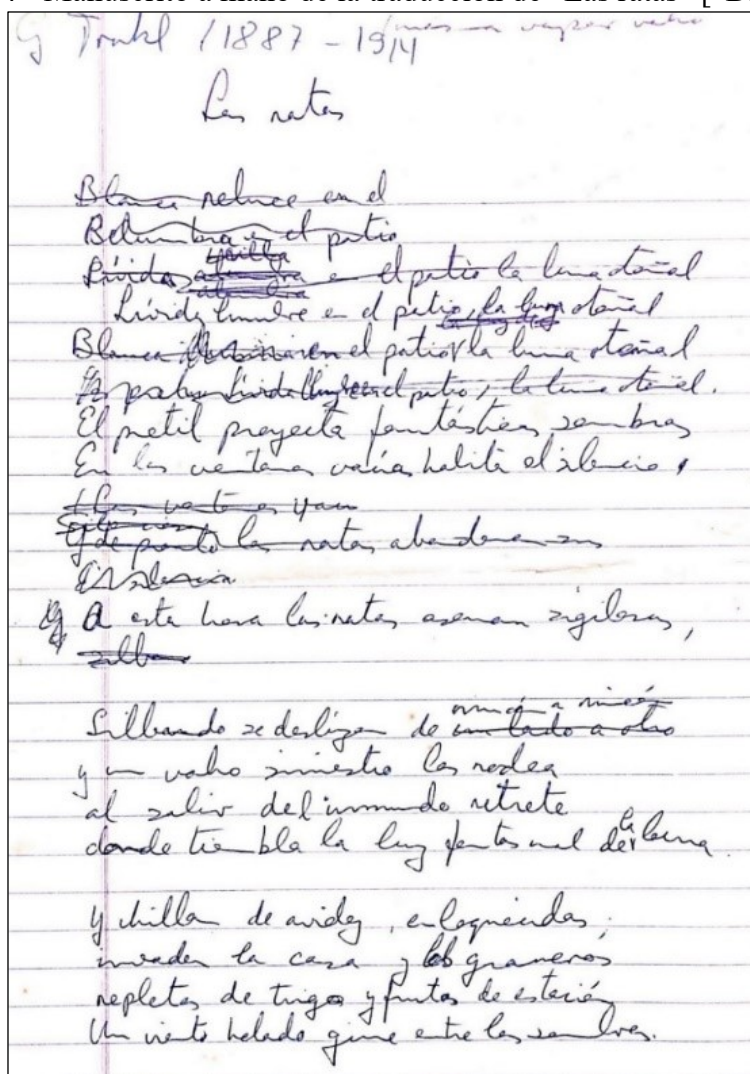 Manuscrito a mano de la traducción de "Las ratas" [
G Trakl / 1887 - 1914
Las ratas
Blanca reluce en el
en el patio
Lívida en el patio la luna otoñal
Lívida lumbre en el patio, la otoñal
Blanca en el patio la luna otoñal
el patio, la luna otoñal.
El pretil proyecta fantásticas sombras
En las ventanas vacías habita el silencio,
las ventanas
Y de pronto las ratas abandonan su
El silencio
A esta hora las ratas asoman sigilosas,
silban
rincón a rincón
Silbando se deslizan de un lado a otro
y un vaho siniestro las rodea
al salir del inmundo retrete
donde tiembla la luz fantasmal de la luna.
y chillan de avidez, enloquecidas,
invaden la casa y los graneros
repletos de trigo y frutas de estación
Un viento helado gime entre las sombras.